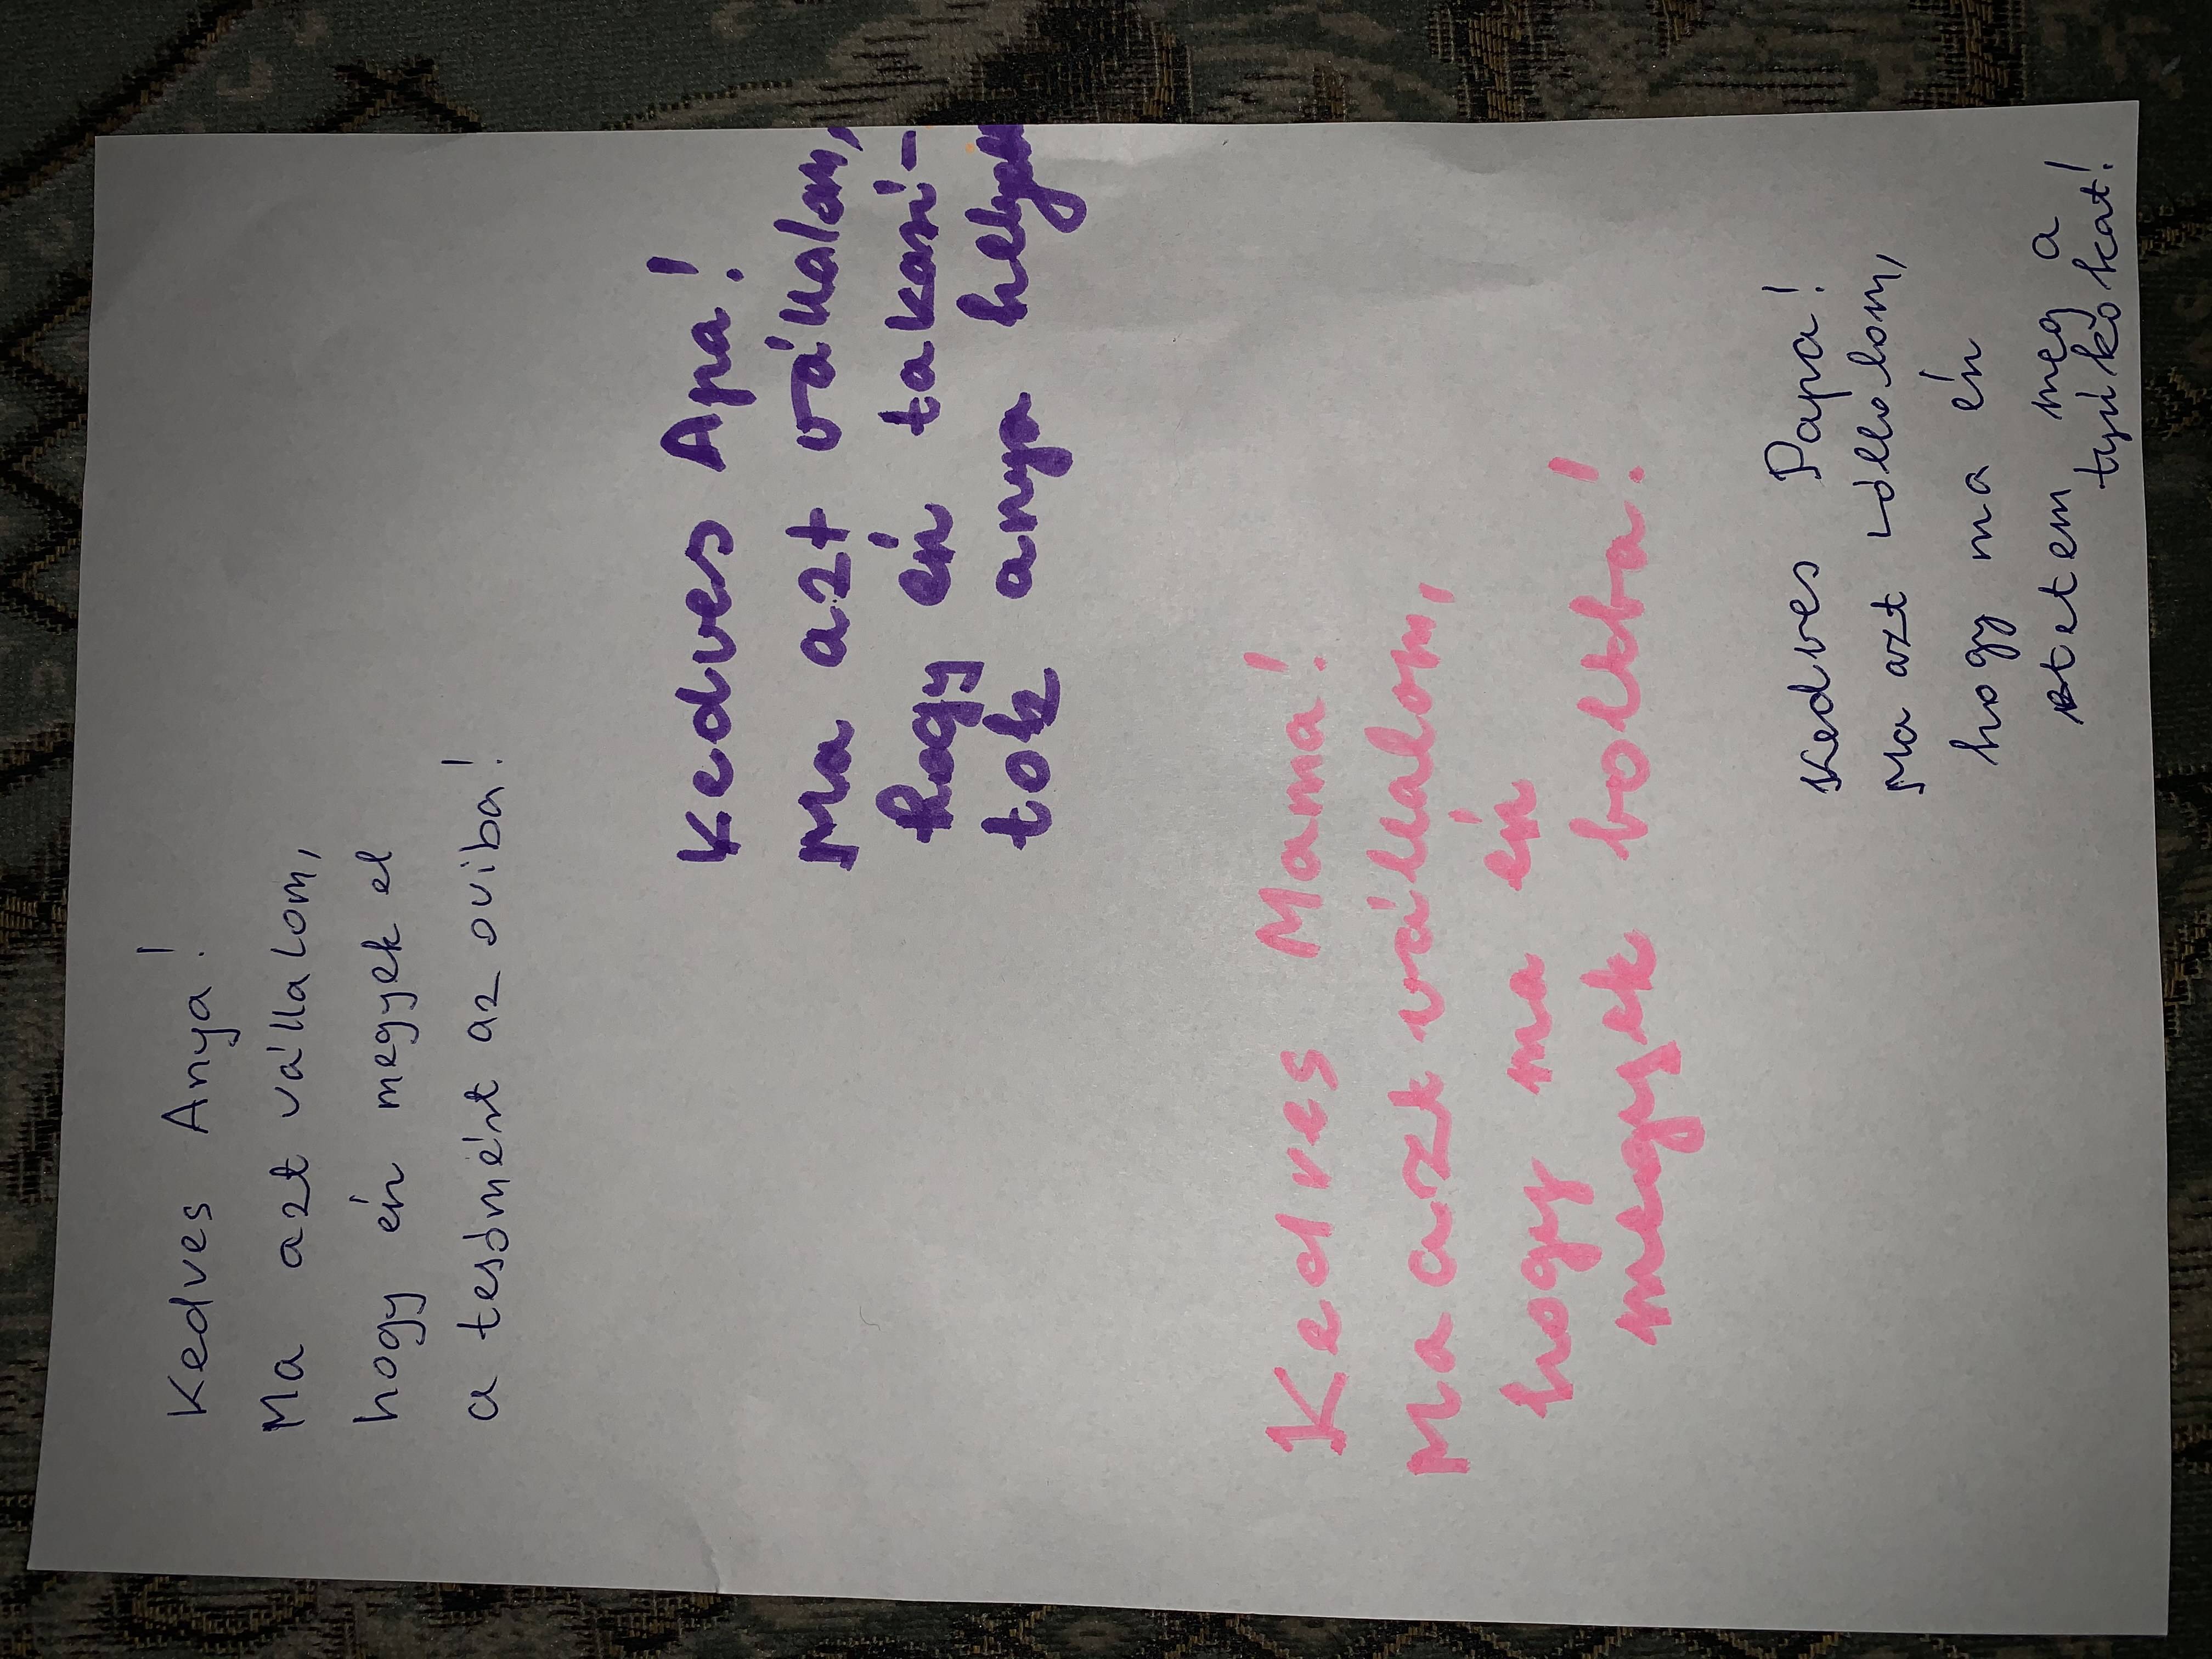 Kedves Anya!
Ma azt vállalom,
hogy én megyek el
a tesómért az oviba!
Kedves Apa!
Ma azt vállalom,
hogy én takarí-
tok anya helyett
Kedves Mama!
Ma azt vállalom,
hogy ma én
megyek boltba!
Kedves Papa!
Ma azt vállalom,
hogy ma én
etetem meg a
tyúkokat!